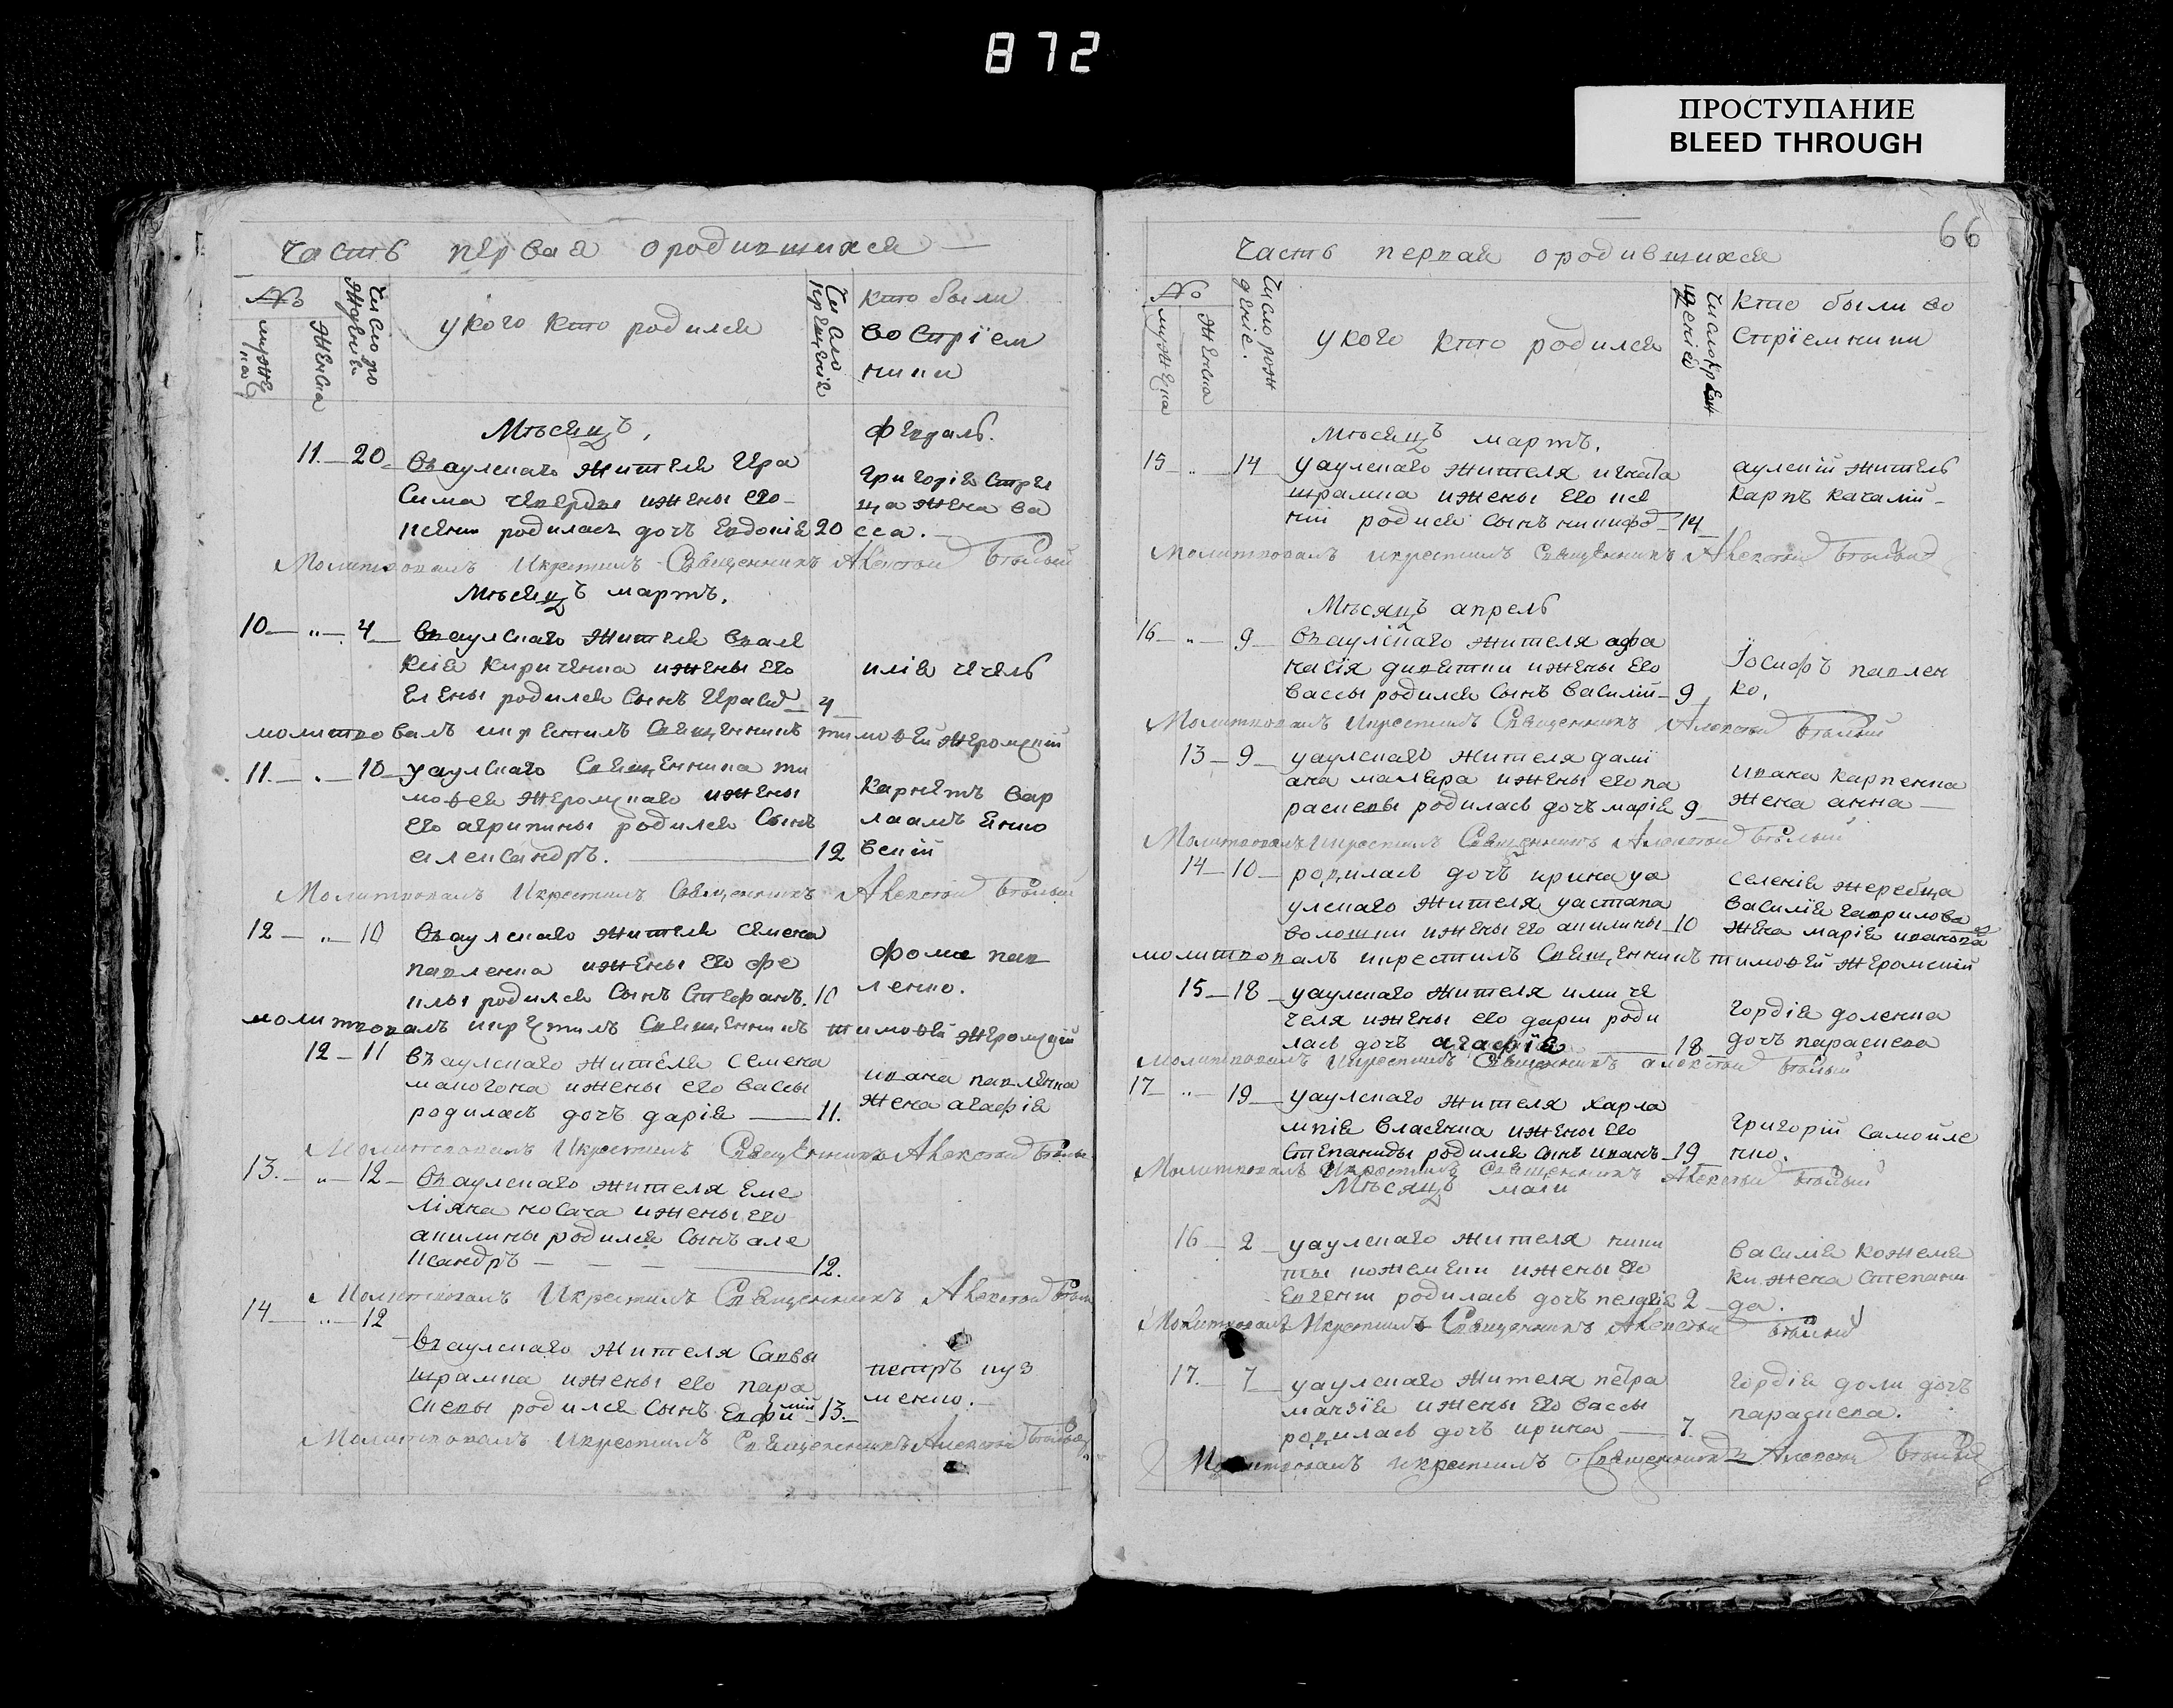 872
ПРОСТУПАНИЕ
BLEED THROUGH
часть первая ородившихся
№
мужеска
женска
число рождения
у кого кто родился
число крещенія
кто были
воспріем
ники
Мѣсяцъ,
февраль.
11 20 въаулскаго жителя Гера
сима чеверды ижены его
ксении родилась дочъ Евдокія 20
григорія стре
ца жена ва
сса.
Молитвовалъ икрестилъ Священникъ Алексѣй Бѣлый
Мѣсяцъ мартъ.
10 " 4 въаулскаго жителя евале
ксія кириченка ижены его
елены родился сынъ Герасид 4
илія чечель
молитвовалъ икрестилъ Священникъ тимоѳей жеромскій
11 " 10 уаулскаго Священника ти
моѳея жеромскаго ижены
его агрипины родился сынъ
александръ. 12
карнетъ вар
лаамъ енко
вский
Молитвовалъ Икрестилъ Священникъ Алексѣй Бѣлый
12 " 10 въаулскаго жителя семена
павленка ижены его фе
клы родился сынъ Стефанъ. 10
фома пав
ленко.
молитвовалъ икрестилъ Священникъ тимоѳей жеромскій
12 11 въаулскаго жителя семена
маногона ижены его вассы
родилась дочъ дарія 11.
ивана павленка
жена агафія
Молитвовалъ Икрестилъ Священникъ Алексѣй Бѣлый
13. " 12 въаулскаго жителя Еме
ліяна носача ижены его
акилины родился сынъ але
ксандръ 12.
Молитвовалъ Икрестилъ Священникъ Алексѣй Бѣлый
14 " 12
въаулскаго жителя саввы
шрамка ижены его пара
скевы родился сынъ Евфимій 13.
петръ куз
менко.
Молитвовалъ Икрестилъ Священникъ Алексѣй Бѣлый
66
часть первая ородившихся
№
мужеска
женска
число рождение.
у кого кто родился
число крещенія
кто были во
спріемники
Мѣсяцъ мартъ.
15 " 14 уаулскаго жителя игната
шрамка ижены его ксе
нии родися сынъ никифо 14
аулскій житель
карпъ качалій
Молитвовалъ икрестилъ Священникъ Алексѣй Бѣлый
Мѣсяцъ апрель
16 " 9 въаулскаго жителя афа
насія дикетки ижены его
вассы родился сынъ василій 9
Іосифъ павлен
ко.
Молитвовалъ Икрестилъ Священникъ Алексѣй Бѣлый
13 9 уаулскаго жителя дамі
ана маляра ижены его па
раскевы родилась дочъ марія 9
ивана карпенка
жена анна
Молитвовалъ Икрестилъ Священникъ Алексѣй Бѣлый
14 10 родилась дочъ ирина уа
улскаго жителя уастапа
волошки ижены его акилины 10
селенія жеребца
василія гаврилова
жена марія иванова
молитвовалъ икрестилъ Священникъ тимоѳей жеромскій
15 18 уаулскаго жителя или че
челя ижены его дарии роди
лась дочъ агафія 18
гордія доленка
дочъ параскева
Молитвовалъ Икрестилъ Священникъ алексѣй Бѣлый
17 " 19 уаулскаго жителя харла
мпія власенка ижены его
степаниды родился сынъ иванъ 19
григорій самойле
нко.
Молитвовалъ Икрестилъ Священникъ Алексѣй Бѣлый
Мѣсяцъ маи
16 2 уаулскаго жителя ники
ты кожемки ижены его
Евгении родилась дочъ 2
василія кожемя
ки жена степани
да.
Молитвовалъ Икрестилъ Священникъ Алексѣй Бѣлый
17. 7 уаулскаго жителя петра
манзія ижены его вассы
родилась дочъ ирина 7.
гордія доли дочъ
параскева.
Молитвовалъ икрестилъ Священникъ Алексѣй Бѣлый